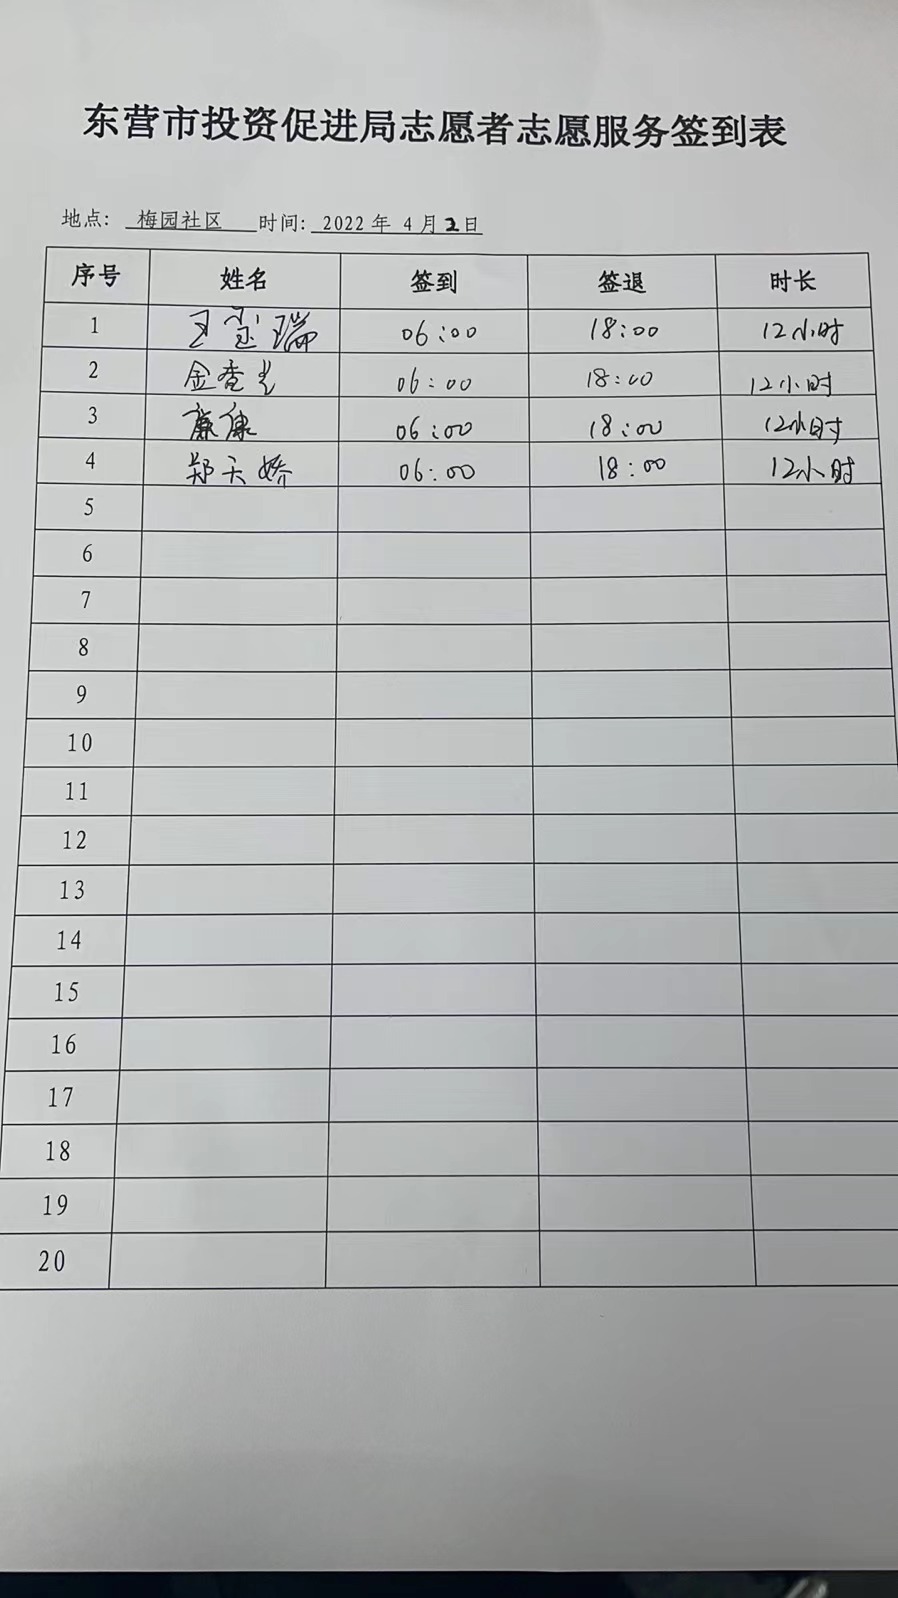 东营市投资促进局志愿者志愿服务签到表
地点: 梅园社区 时间: 2022 年 4 月 2 日
序号 姓名 签到 签退 时长
1 王宝瑞 06:00 18:00 12小时
2 金香兰 06:00 18:00 12小时
3 廉康 06:00 18:00 12小时
4 郑天娇 06:00 18:00 12小时
5
6
7
8
9
10
11
12
13
14
15
16
17
18
19
20